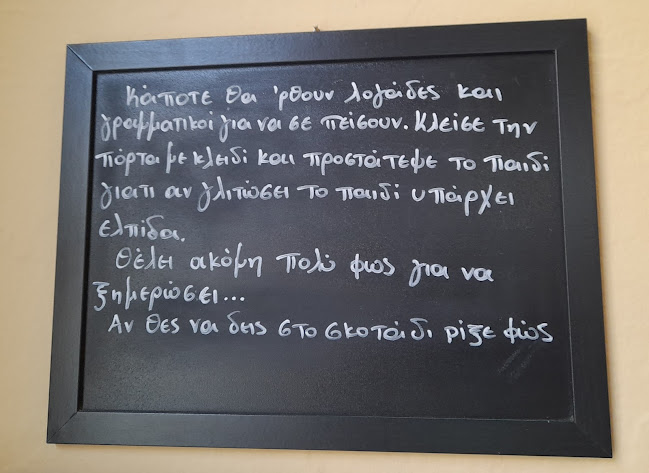 Κάποτε θα 'ρθουν λογάδες και
γραμματικοί για να σε πείσουν. Κλείσε την
πόρτα με κλειδί και προστάτεψε το παιδί
γιατι αν γλιτώσει το παιδί υπάρχει
ελπίδα.
Θέλει ακόμη πολύ φως για να
ξημερώσει...
Αν θες να δεις στο σκοτάδι ρίξε φώς